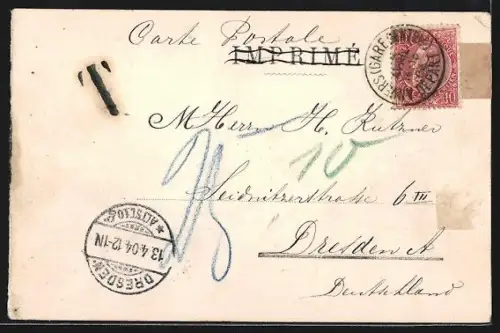 Carte Postale
IMPRIMÉ
T
10
M Herrn H. Kutzner
10
25
Seidnitzerstrasse 6 III
Dresden A
Deutschland
DRESDEN
13.4.04.12-1N
* ALTST.10c.